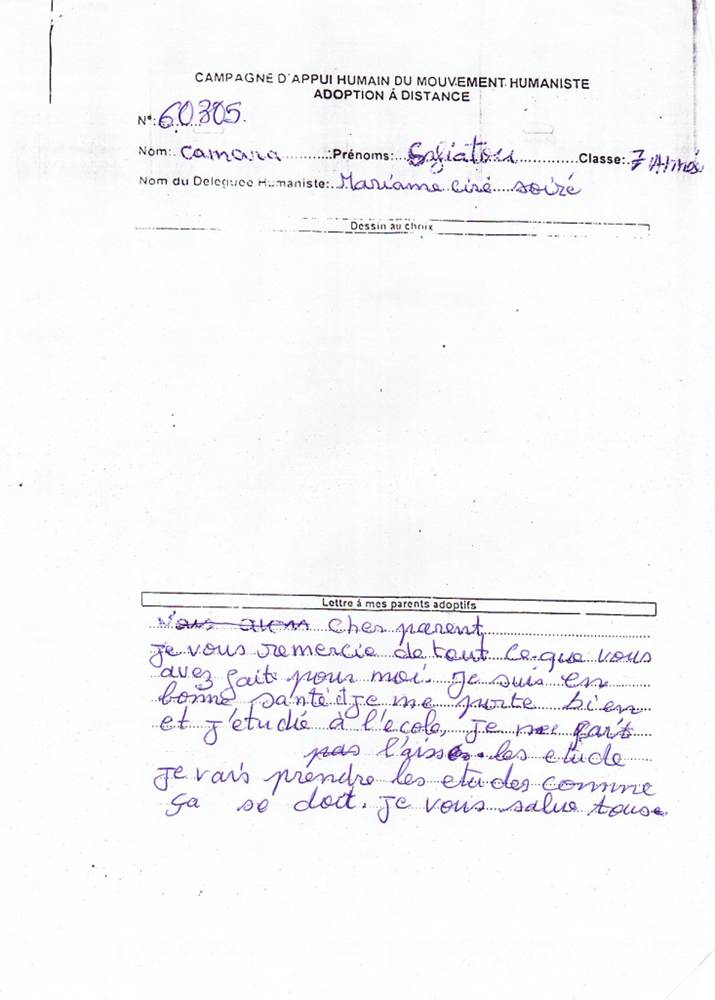 CAMPAGNE D'APPUI HUMAIN DU MOUVEMENT HUMANISTE
ADOPTION Á DISTANCE
N°: 60305
Nom: Camara Prénoms: Safiatou Classe: 7
Nom du Deleguee Humaniste: Mariame ciré soiré
Dessin au choix
Lettre á mes parents adoptifs
Cher parent
je vous remercie de tout ce que vous
avez fait pour moi. Je suis en
bonne santé et je me porte bien
et j'étudie à l'école, je ne fais
pas les etude
Je vais prendre les etudes comme
ça se doit. je vous salue tous